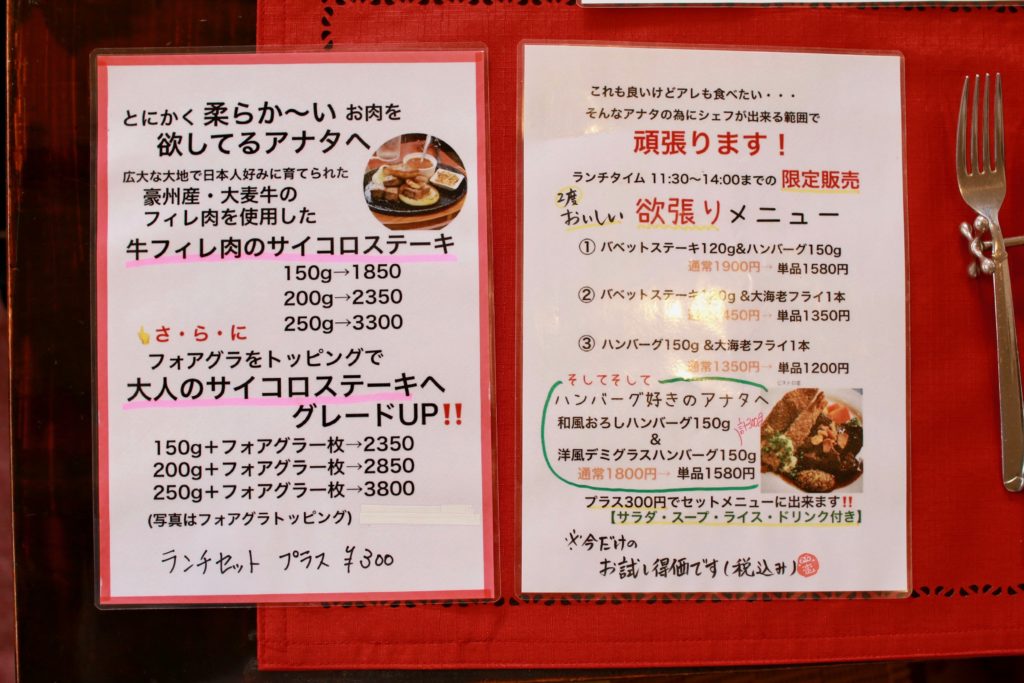 とにかく 柔らか〜い お肉を
欲してるアナタへ
広大な大地で日本人好みに育てられた
豪州産・大麦牛の
フィレ肉を使用した
牛フィレ肉のサイコロステーキ
150g→1850
200g→2350
250g→3300
さ・ら・に
フォアグラをトッピングで
大人のサイコロステーキへ
グレードUP!!
150g+フォアグラ一枚→2350
200g+フォアグラ一枚→2850
250g+フォアグラ一枚→3800
(写真はフォアグラトッピング)
ランチセット プラス ¥300
これも良いけどアレも食べたい・・・
そんなアナタの為にシェフが出来る範囲で
頑張ります!
ランチタイム 11:30〜14:00までの 限定販売
2度おいしい 欲張りメニュー
① バベットステーキ120g&ハンバーグ150g
通常1900円→ 単品1580円
② バベットステーキ120g &大海老フライ1本
450円→ 単品1350円
③ ハンバーグ150g &大海老フライ1本
通常1350円→ 単品1200円
そしてそして
ハンバーグ好きのアナタへ
和風おろしハンバーグ150g
&
洋風デミグラスハンバーグ150g
通常1800円→ 単品1580円
プラス300円でセットメニューに出来ます!!
【サラダ・スープ・ライス・ドリンク付き】
※今だけの
お試し得価です(税込み)